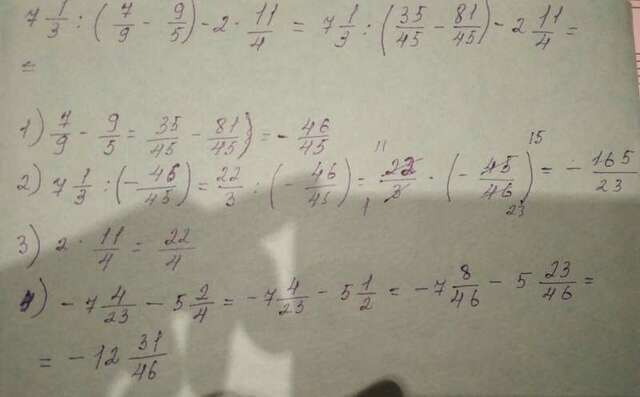 7 1/3 : (7/9 - 9/5) - 2 · 11/4 = 7 1/3 : (35/45 - 81/45) - 2 11/4 =
=
1) 7/9 - 9/5 = 35/45 - 81/45) = - 46/45
2) 7 1/3 : (- 46/45) = 22/3 : (- 46/45) = 22/3 · (- 45/46) = - 165/23
11 1 15 23
3) 2 · 11/4 = 22/4
4) - 7 4/23 - 5 2/4 = - 7 4/23 - 5 1/2 = - 7 8/46 - 5 23/46 =
= - 12 31/46